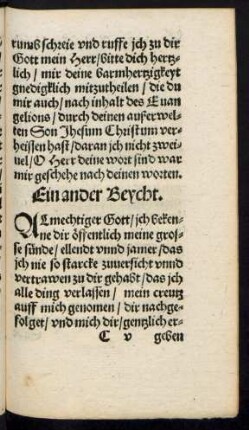 rumb schreie vnd ruffe jch zu dir
Gott mein Herr/ bitte dich hertz-
lich/ mir deine barmhertzigkeyt
gnedigklich mitzutheilen/ die du
mir auch/ nach inhalt des Euan
gelions/ durch deinen außerwel-
ten Son Jhesum Christum ver-
heissen hast/ daran jch nicht zwei-
uel/ O Herr deine wort sind war
mir geschehe nach deinen worten.
Ein ander Beycht.
ALmechtiger Gott/ jch beken-
ne dir öffentlich meine gros-
se sünde/ ellendt vnnd jamer/ das
jch nie so starcke zuuersicht vnnd
vertrawen zu dir gehabt/ das jch
alle ding verlassen/ mein creutz
auff mich genomen/ dir nachge-
folget/ vnd mich dir/ gentzlich er-
C v geben